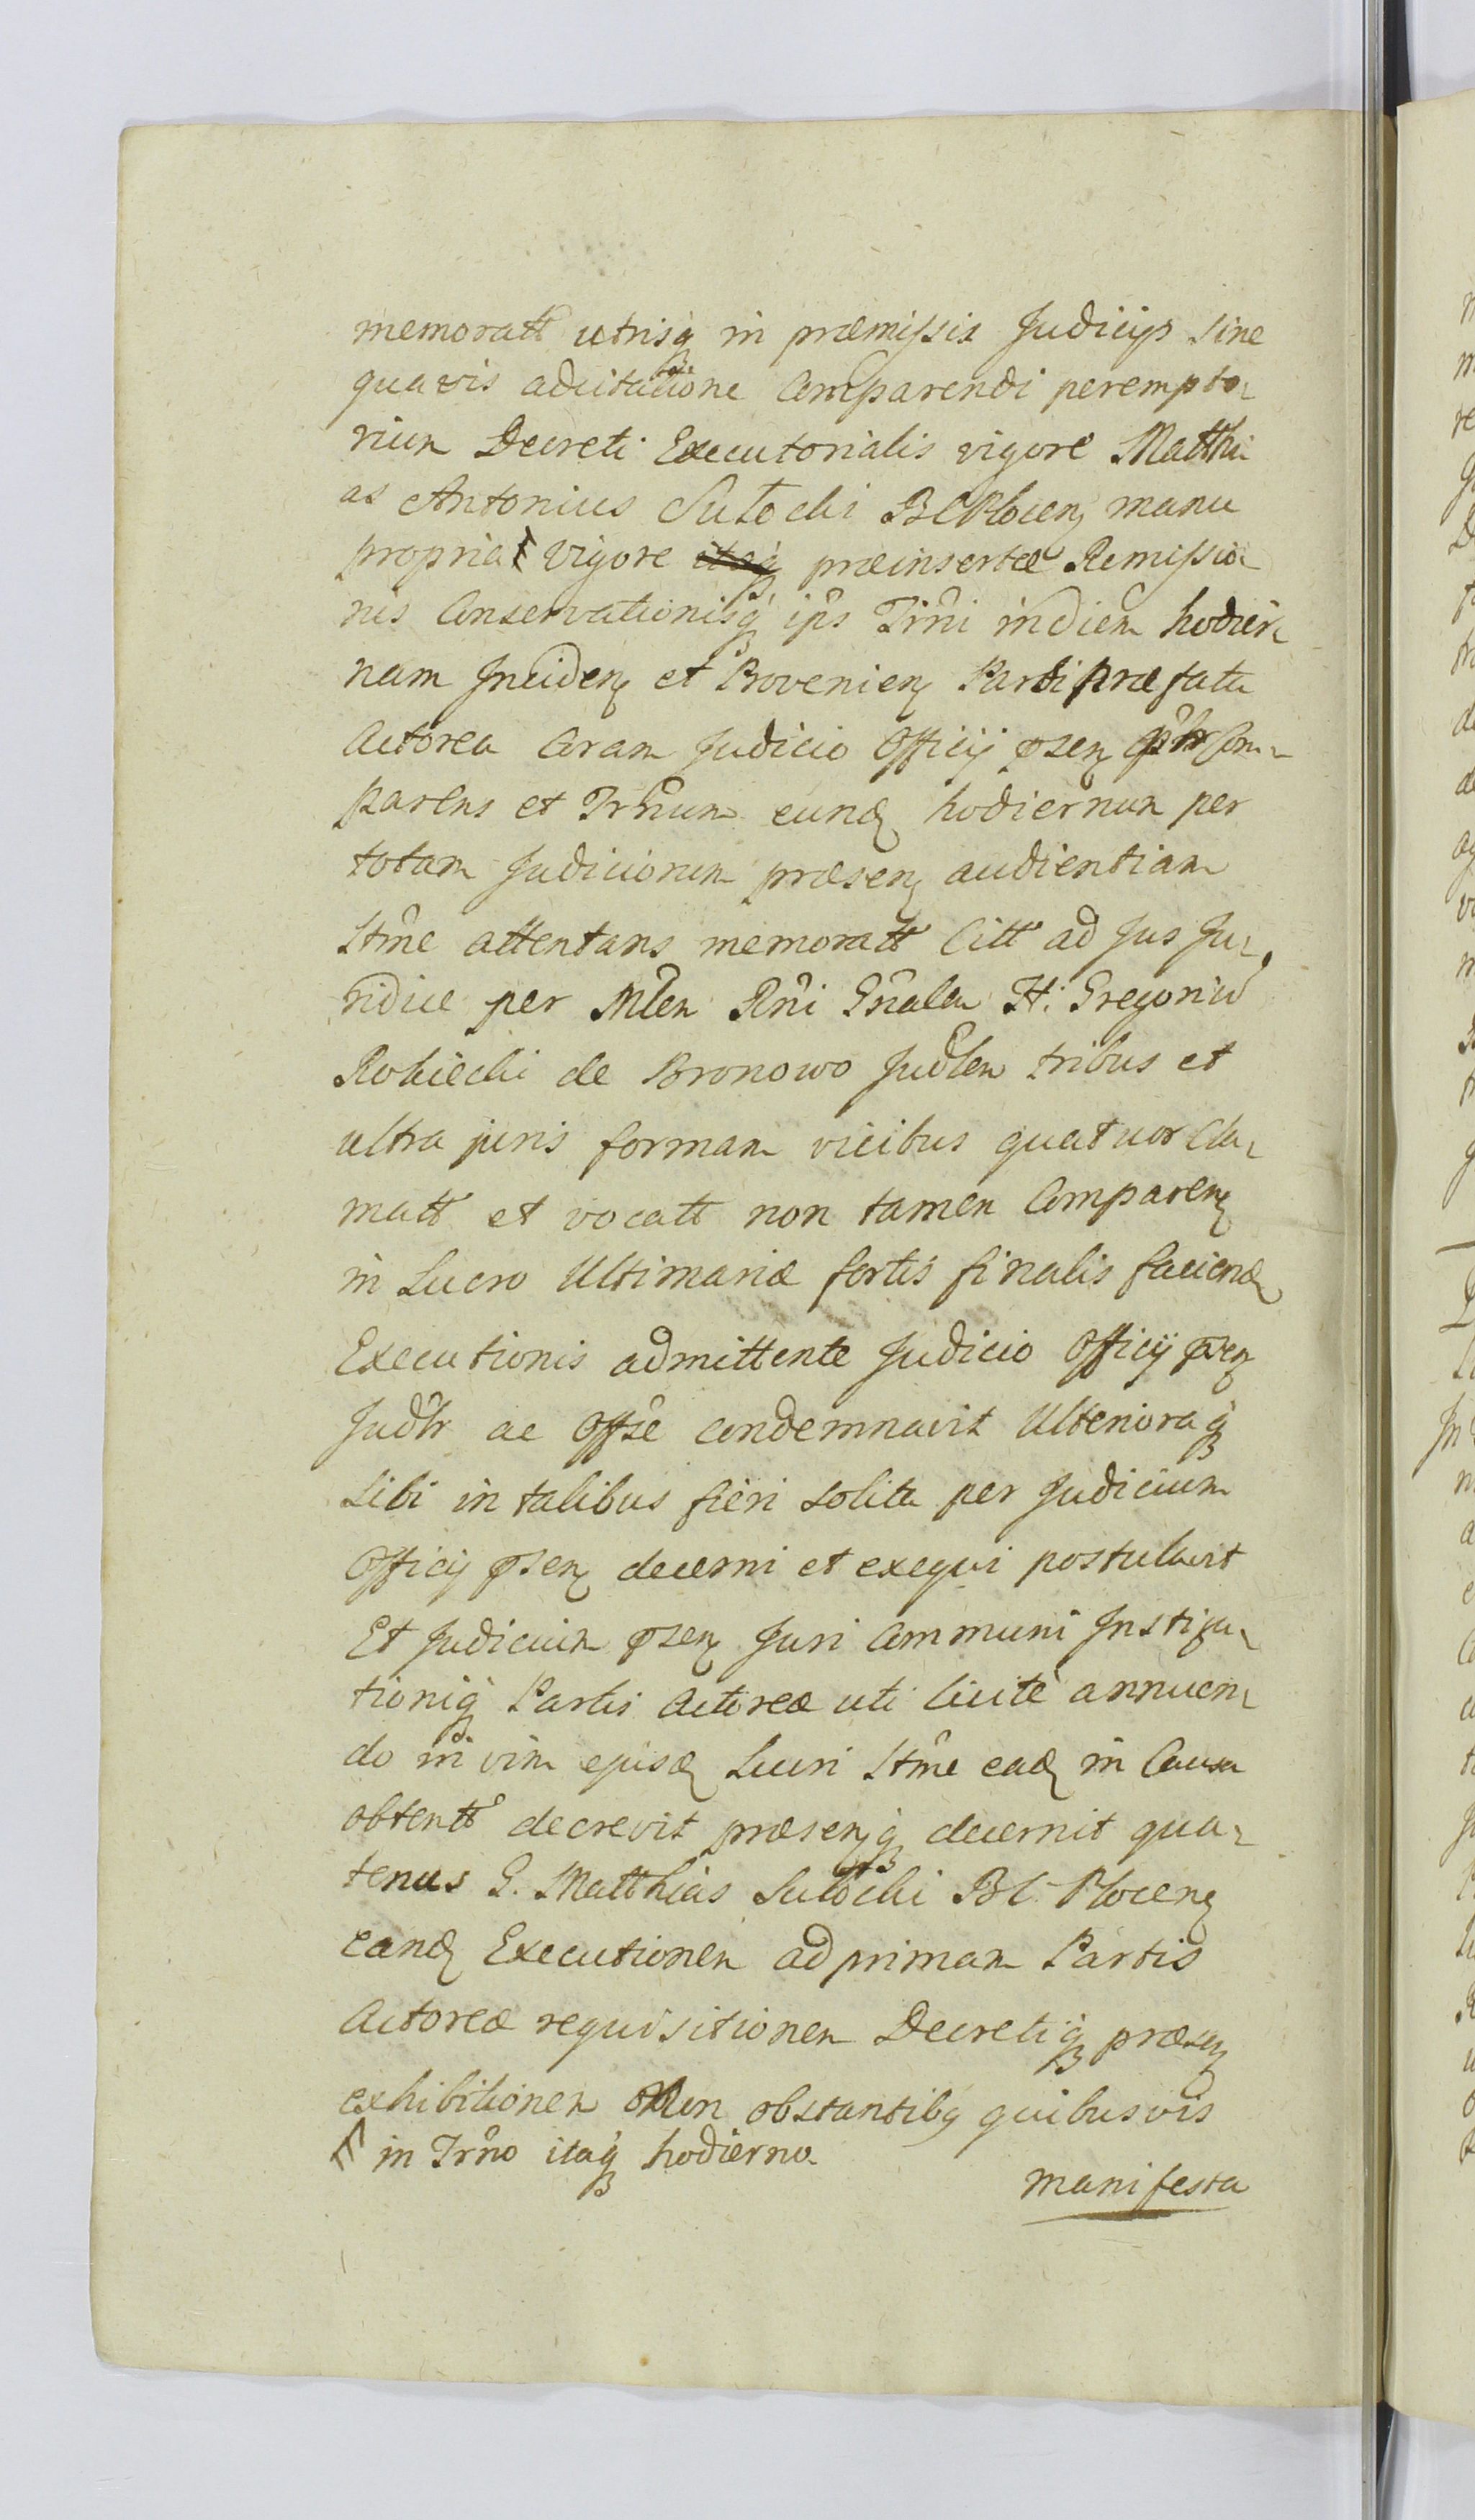 memoratt utrisq in præmissis Judicijs sine
quavis adcitatione Comparendi perempto-
rium Decreti Executorialis vigore Matthi-
as Antonius Sutocki BCPlocen manu
propria Vigore itaq præinsertæ Remissio-
nis Conservationisq ips Trni in diem hodier-
nam Inciden et Provenien Parti præfata
Actorea Coram Judicio Officij psen Com-
parens et Trnum eund hodiernum per
totam Judiciorum præsen audientiam
Stme attentans memoratt Citt ad Jus Ju-
ridice per Mlem Rni Gnalem H. Gregoriu
Rokicki de Bronowo Judlem tribus et
ultra juris formam vicibus quatuor Cla-
matt et vocatt non tamen Comparen
in Lucro Ultimariæ fortis finalis faciend
Executionis admittente Judicio Officij psen
Judlr ac Offse condemnavit Ulterioraq
sibi in talibus fieri solita per Judicium
Officij psen decerni et exequi postulavit
Et Judicium psen Juri Communi Instiga-
tioniq Partis Actoreæ uti licite annuen-
do in vim ejusd Lucri Stme ead in Causa
obtentt decrevit præsenq decernit qua-
tenus G. Matthias Sutocki BC Plocen
eand Executionem ad primam Partis
Actoreæ requisitionem Decretiq præsen
exhibitionem Non obstantibq quibusvis
in Trno itaq hodierno
manifesta